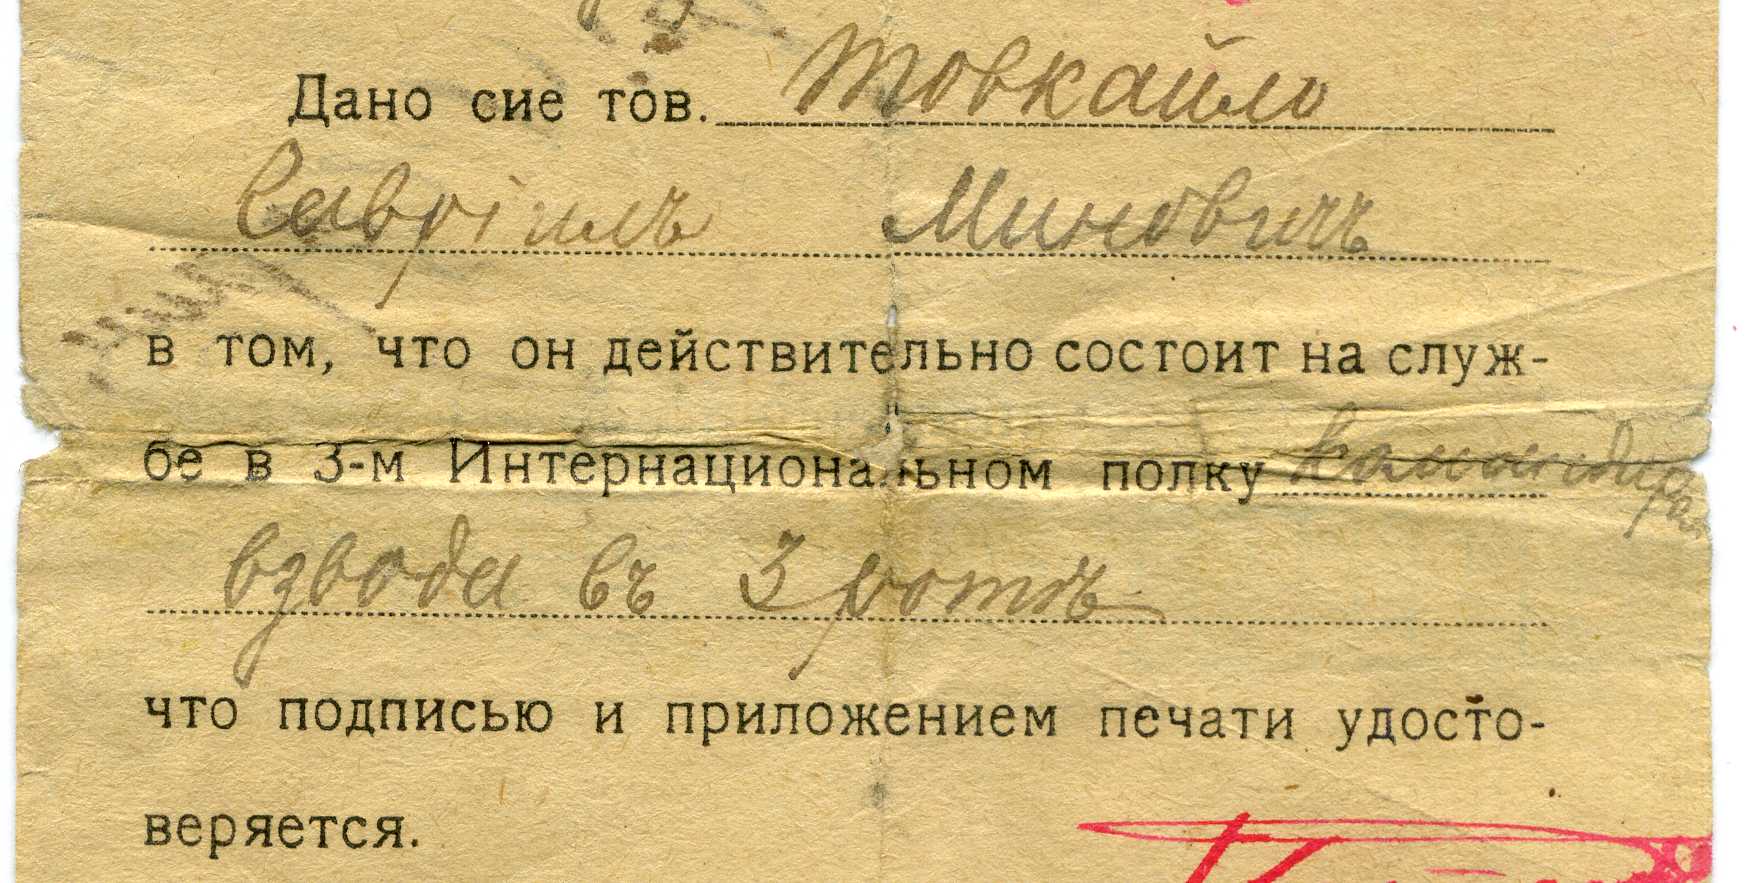 Дано сие тов. Товкайло
Гаврiилъ Миновичъ
в том, что он действительно состоит на служ-
бе в 3-м Интернациональном полку командира
взвода въ 3 ротѣ
что подписью и приложением печати удосто-
веряется.